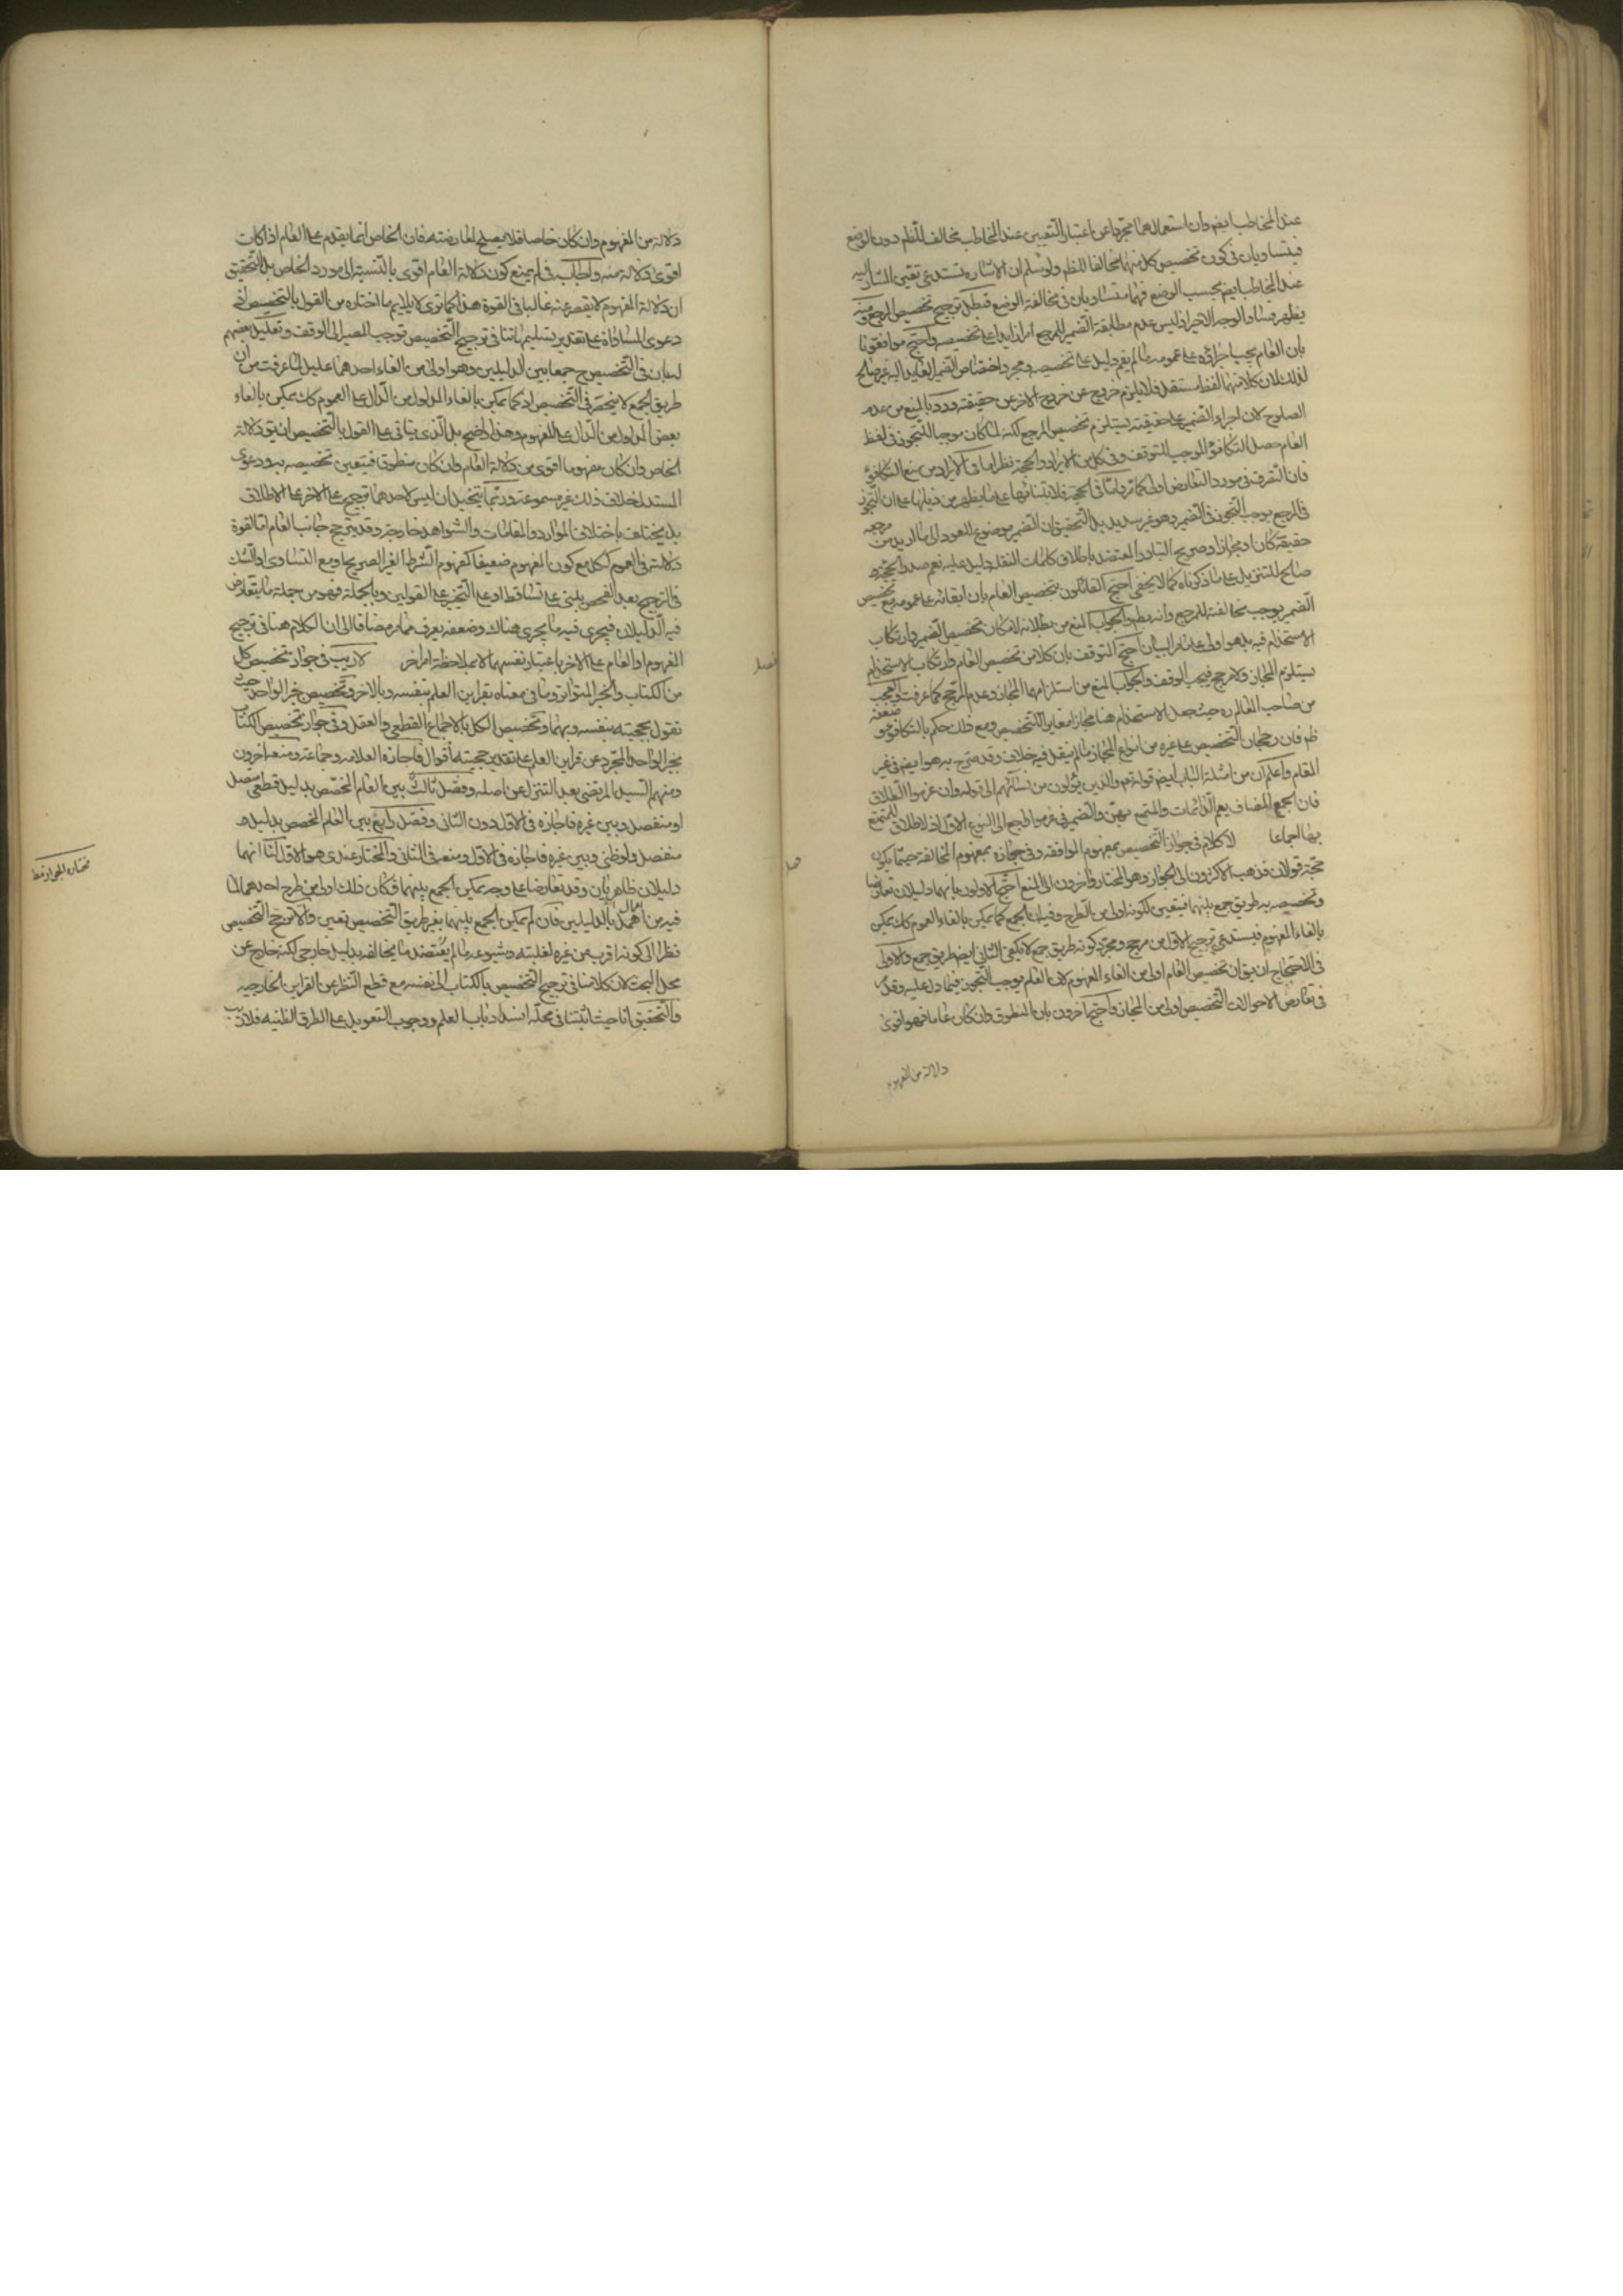 عند المخاطب ايضم وان استعمالهما مجردا عن اعتبار التعيين عند المخاطب مخالف للظم دون الوضع
فيتساويان في كون تخصيص كل منهما مخالفا للظم ولو سلم ان الاشاره تستدعي تعيين المشار اليه
عند المخاطب ايضم بحسب الوضع فهما متساويان في مخالفة الوضع فبطل ترجيح تخصيص المرجع ومنه
يظهر فساد الوجه الاخير اذ ليس عدم مطابقة الضمير للمرجع امرا زايدا على تخصيصه واحتج موافقونا
بان العام يجب اجراؤه على عمومه ما لم يقم دليل على تخصيصه ومجرد اختصاص الضمير العايد اليه غير صالح
لذلك لان كلا منهما لفظ مستقل فلا يلزم من خروج احدهما عن حقيقته وردّ بالمنع من عدم
الصلوح لان اجراء الضمير على حقيقته يستلزم تخصيص المرجع لكنه لما كان موجبا للتجوز في لفظ
العام حصل التكافؤ الموجب للتوقف وفي كل من الايراد والحجة نظر اما في الايراد فمن منع التكافؤ
فان التصرف في مورد التعارض اولى كما مر واما في الحجة فلابتنائها على ما يظهر من ذيلها على ان التجوز
في المرجع يوجب التجوز في الضمير وهو غير سديد بل التحقيق ان الضمير موضوع للعود الى ما اريد من مرجعه
حقيقة كان او مجازا وصريح التبادر المعتضد باطلاق كلمات النقلة دليل عليه نعم صدر الحجة
صالح للتنزيل على ما ذكرناه كما لا يخفى احتج القائلون بتخصيص العام بان ابقائه على عمومه مع تخصيص
الضمير يوجب مخالفته للمرجع وانه بط والجواب المنع من بطلانه لامكان تخصيص الضمير وارتكاب
الاستخدام فيه بل هو اولى على ما مر البيان احتج المتوقف بان كلا من تخصيص العام وارتكاب الاستخدام
يستلزم المجاز ولا مرجح فيجب الوقف والجواب المنع من استلزامهما المجاز وعدم المرجح كما عرفت والعجب
من صاحب المعالم ره حيث جعل الاستخدام هنا مجازا مغايرا للتخصيص ومع ذلك حكم بالتكافؤ وضعفه
ظم فان رجحان التخصيص على غيره من انواع المجاز مما لم ينقل فيه خلاف وقد صرح به هو ايضم في غير
المقام واعلم ان من امثلة الباب ايضم قوله تعم والذين يؤلون من نسائهم الى قوله وان عزموا الطلاق
فان الجمع المضاف يعم الدائمات والمتمتع بهن والضمير في عزموا راجع الى النوع الاول اذ لا طلاق للمتمتع
بها اجماعا لا كلام في جواز التخصيص بمفهوم الموافقه وفي جوازه بمفهوم المخالفة حيثما يكون
حجّة قولان فذهب الاكثرون الى الجواز وهو المختار واخرون الى المنع احتج الاولون بانهما دليلان تعارضا
وتخصيصه به طريق جمع بينهما فيتعين لكونه اولى من الطرح وفيه ان الجمع كما يمكن بالغاء العموم كك يمكن
بالغاء المفهوم فيستدعي ترجيح الاول من مرجح ومجرد كونه طريق جمع لا يكفي اذ الثاني ايضم طريق جمع والاولى
في الاحتجاج ان يق ان تخصيص العام اولى من الغاء المفهوم لان العام يوجب التجوز فيما دل عليه وقد مر
في تعارض الاحوال ان التخصيص اولى من المجاز واحتج اخرون بان المنطوق وان كان عاما فهو اقوى
دلالة من المفهوم
دلالة من المفهوم وان كان خاصا فلا يصلح لمعارضته فان الخاص انما يقدم على العام اذا كانت
اقوى دلالة منه واجاب في لم بمنع كون دلالة العام اقوى بالنسبة الى مورد الخاص بل التحقيق
ان دلالة المفهوم لا يقصر عنه غالبا في القوة هذا كما ترى لا يلايم ما اختاره من القول بالتخصيص لان
دعوى المساواة على تقدير تسليمها تنافي ترجيح التخصيص توجب المصير الى الوقف وتعليل بعضهم
له بان في التخصيص ح جمعا بين الدليلين وهو اولى من الغاء احدهما عليل لما عرفت من ان
طريق الجمع لا ينحصر في التخصيص اذ كما يمكن بالغاء المدلول من الدال على العموم كك يمكن بالغاء
بعض المدلول من الدال على المفهوم وهذا واضح بل الذي يتاتى على القول بالتخصيص ان يق دلالة
الخاص وان كان مفهوما اقوى من دلالة العام وان كان منطوقا فيتعين تخصيصه به ودعوى
المستدل خلاف ذلك غير مسموعة وربما يتخيل ان ليس لاحدهما ترجيح على الاخر على الاطلاق
بل يختلف باختلاف الموارد والمقامات والشواهد خارجة وقد يترجح جانب العام اما لقوة
دلالته في العموم ككل مع كون المفهوم ضعيفا كمفهوم الشرط الغير الصريح او مع التساوي او الشك
في الترجيح بعد الفحص يبنى على تساقط او على التخير على القولين وبالجملة فهو من جملة ما يتعارض
فيه الدليلان فيجري فيه ما يجري هناك وضعفه يعرف مما مر مضافا الى ان الكلام هنا في ترجيح
المفهوم او العام على الاخر باعتبار نفسهما لا بملاحظة امر اخر لا ريب في جواز تخصيص كل
من الكتاب والخبر المتواتر وما في معناه بقراين العلم بنفسه وبالاخر وتخصيص خبر الواحد حيث
نقول بحجيته بنفسه وبهما وتخصيص الكل بالاجماع القطعي والعقل وفي جواز تخصيص الكتاب
بخبر الواحد المجرد عن قراين العلم على تقدير حجيته اقوال فاجازه العلامه وجماعة ومنعه اخرون
ومنهم السيد المرتضى بعد التنزل عن اصله وفصل ثالث بين العام المخصص بدليل قطعي متصل
او منفصل وبين غيره فاجازه في الاول دون الثاني وفصل رابع بين العام المخصص بدليل
منفصل ولو ظني وبين غيره فاجازه في الاول ومنعه في الثاني والمختار عندي هو الاول لنا انهما
دليلان ظاهريان وقد تعارضا على وجه يمكن الجمع بينهما فكان ذلك اولى من طرح احدهما لما
فيه من اهمال الدليلين فان لم يمكن الجمع بينهما بغير طريق التخصيص تعين والا رجح التخصيص
نظرا الى كونه اقرب من غيره لغلبته وشيوعه ما لم يعتضد ما يخالفه بدليل خارجي لكنه خارج عن
محل البحث لان كلامنا في ترجيح التخصيص بالكتاب الى نفسه مع قطع النظر عن القراين الخارجيه
والتحقيق انا حيث اثبتنا في محله انسداد باب العلم ووجوب التعويل على الطرق الظنيه فلا ريب
فصل